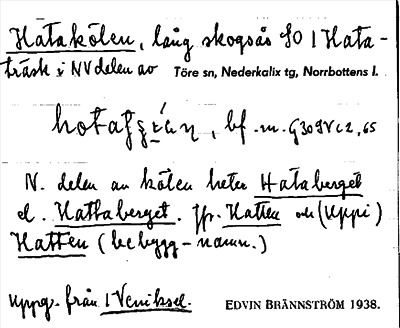 Hatakölen, lång skogsås SO i Hata-
träsk i NV delen av Töre sn, Nederkalix tg, Norrbottens l.
bf. m.
N. delen av kölen heter Hataberget
el. Hattaberget. Jfr. Hatten och (Uppi)
Hatten (bebygg-namn.)
Uppg. från EDVIN BRÄNNSTRÖM 1938.